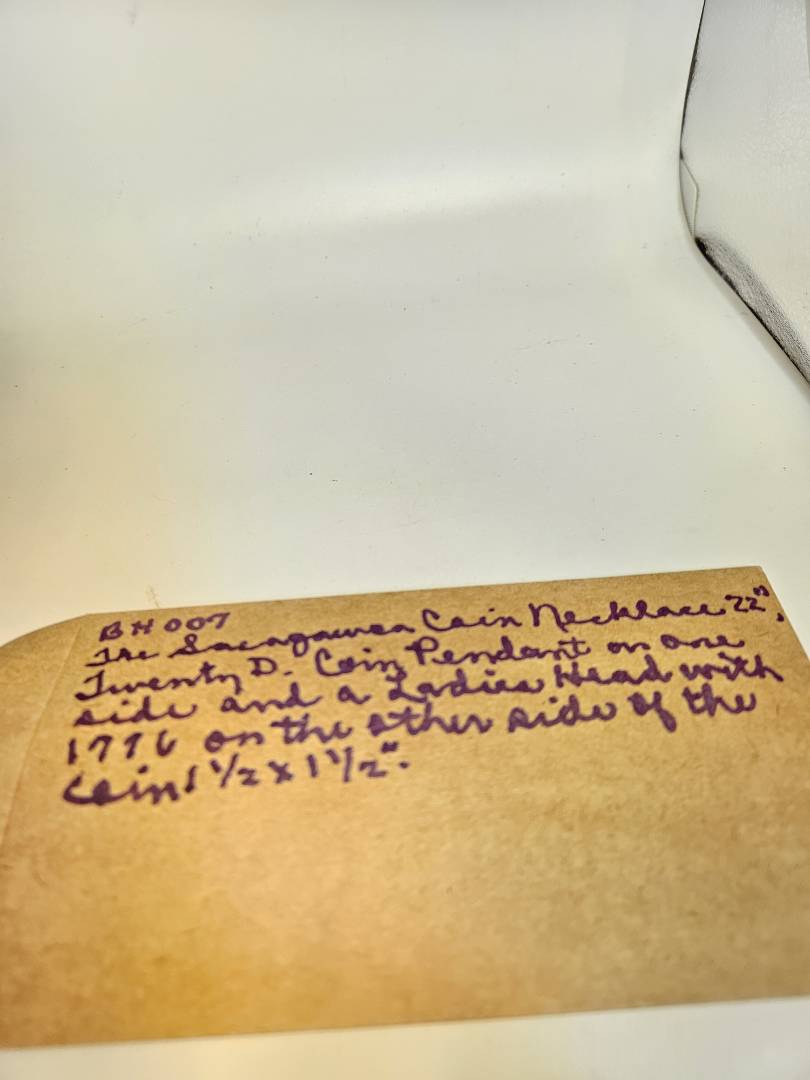 BH007
The Sacagawea Coin Necklace 22",
Twenty D. Coin Pendant on one
side and a Ladies Head with
1776 on the other side of the
Coin 1 1/2 x 1 1/2".